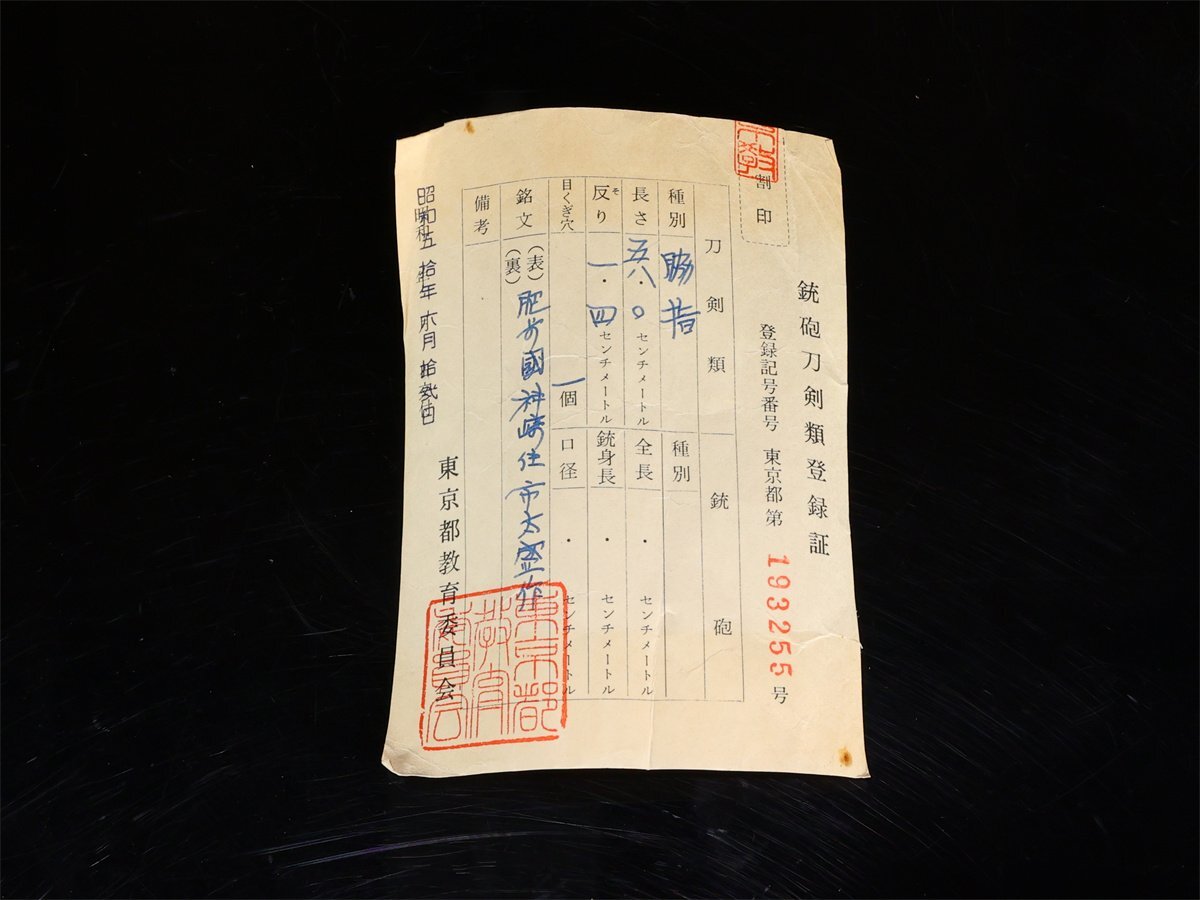 割印
銃砲刀剣類登録証
登録記号番号 東京都第 193255 号
刀剣類
銃砲
種別
脇差
種別
長さ
五八・〇センチメートル
全長
・ センチメートル
反り
そ
一・四センチメートル
銃身長
・ センチメートル
目くぎ穴
一個
口径
・ センチメートル
銘文
(表)
(裏)
肥前國神崎住市太盛作
備考
昭和五拾年
東京都教育委員会
東京都教育委員会